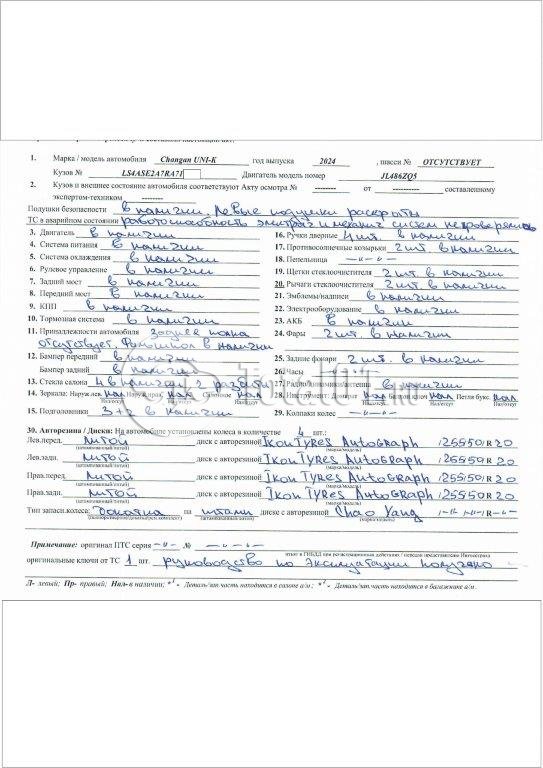 1. Марка / модель автомобиля Changan UNI-K год выпуска 2024 , шасси № ОТСУТСТВУЕТ
Кузов № LS4ASE2A7RA71 Двигатель модель номер JL486ZQ5
2. Кузов и внешнее состояние автомобиля соответствуют Акту осмотра № -------- от -------- составленному
экспертом-техником --------
Подушки безопасности в наличии. Левые подушки раскрыты
ТС в аварийном состоянии работоспособность электрич и механич систем не проверялась
3. Двигатель в наличии 16. Ручки дверные 4 шт. в наличии
4. Система питания в наличии 17. Противосолнечные козырьки 2 шт в наличии
5. Система охлаждения в наличии 18. Пепельница -"-"-
6. Рулевое управление в наличии 19. Щетки стеклоочистителя 2 шт. в наличии
7. Задний мост в наличии 20. Рычаги стеклоочистителя 2 шт. в наличии
8. Передний мост в наличии 21. Эмблемы/надписи в наличии
9. КПП в наличии 22. Электрооборудование в наличии
10. Тормозная система в наличии 23. АКБ в наличии
11. Принадлежности автомобиля задняя полка 24. Фары 2 шт. в наличии
отсутствует. в наличии
12. Бампер передний в наличии 25. Задние фонари 2 шт. в наличии
Бампер задний в наличии 26. Часы
13. Стекла салона 4 в наличии 2 разбиты 27. Радиоприемник/антенна в наличии
14. Зеркала: Наруж лев. нал Наруж прав. нал Салонное нал 28. Инструмент: Домкрат нал Баллон ключ нал Петля букс. нал
15. Подголовники 3+2 в наличии 29. Колпаки колес -"-"-
30. Авторезина / Диски: На автомобиле установлены колеса в количестве 4 шт.:
Лев.перед. литой диск с авторезиной Ikon Tyres Autograph , 255 50 R 20
(штампованный/литой) (марка/модель)
Лев.задн. литой диск с авторезиной Ikon Tyres Autograph , 255 50 R 20
Прав.перед. литой диск с авторезиной Ikon Tyres Autograph , 255 50 R 20
Прав.задн. литой диск с авторезиной Ikon Tyres Autograph , 255 50 R 20
Тип запасн.колеса: докатка на штамп диске с авторезиной Chao Yang -"- -"- R -"-
Примечание: оригинал ПТС серия -"- № -"-"-
изъят в ГИБДД при регистрационных действиях / передан представителю Ингосстрах
оригинальные ключи от ТС 1 шт. руководство по эксплуатации получено
Л- левый; Пр- правый; Нал- в наличии; *¹ - Деталь/зап.часть находится в салоне а/м ; *² - Деталь/зап.часть находится в багажнике а/м.